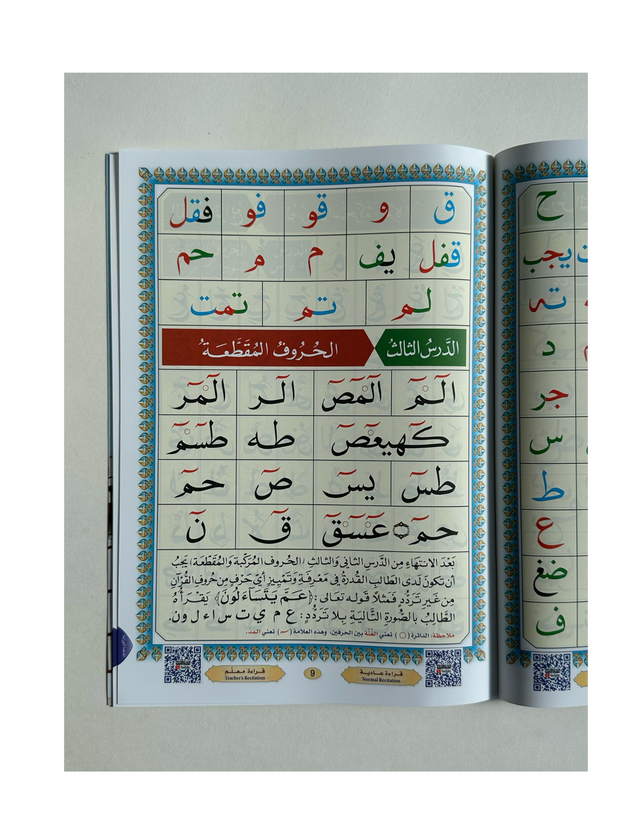 ق و قو فو فقل
قفل يف م م حم
لم تم تمت
الدَّرسُ الثالثُ الحُرُوفُ المُقَطَّعَةُ
الٓمٓ الٓمٓصٓ الٓر الٓمٓر
كٓهيعٓصٓ طه طسٓمٓ
طسٓ يسٓ صٓ حمٓ
حمٓ ۞ عٓسٓقٓ قٓ نٓ
بَعْدَ الانتهَاءِ مِن الدَّرسَينِ الثَّانِي وَالثَّالِثِ (الحُروفِ المُرَكَّبَةِ وَالمُقَطَّعَةِ) يَجِبُ
أن تكونَ لَدى الطَّالِبِ القُدرَةُ فِي مَعْرِفَةِ وَتَمْيِيزِ أيِّ حَرْفٍ مِن حُرُوفِ القُرْآنِ
مِن غَيرِ تَرَدُّدٍ فَمَثَلًا قولـه تعالى: ﴿عَمَّ يَتَسَآءَلُونَ﴾ يَقْرَأُهُ
الطَّالِبُ بِالصُّورَةِ التَّالِيَةِ بِلا تَرَدُّدٍ: ع م ي ت س ا ء ل و ن.
ملاحظة: الدائرة (○) تعني الغُنَّة بين الحرفين، وهذه العلامة (ـٓ) تعني المَدّ.
قراءة عادية
Normal Recitation
9
قراءة معلم
Teacher's Recitation
ح
يجب
ته
د
جر
س
ط
ع
ضغ
ف